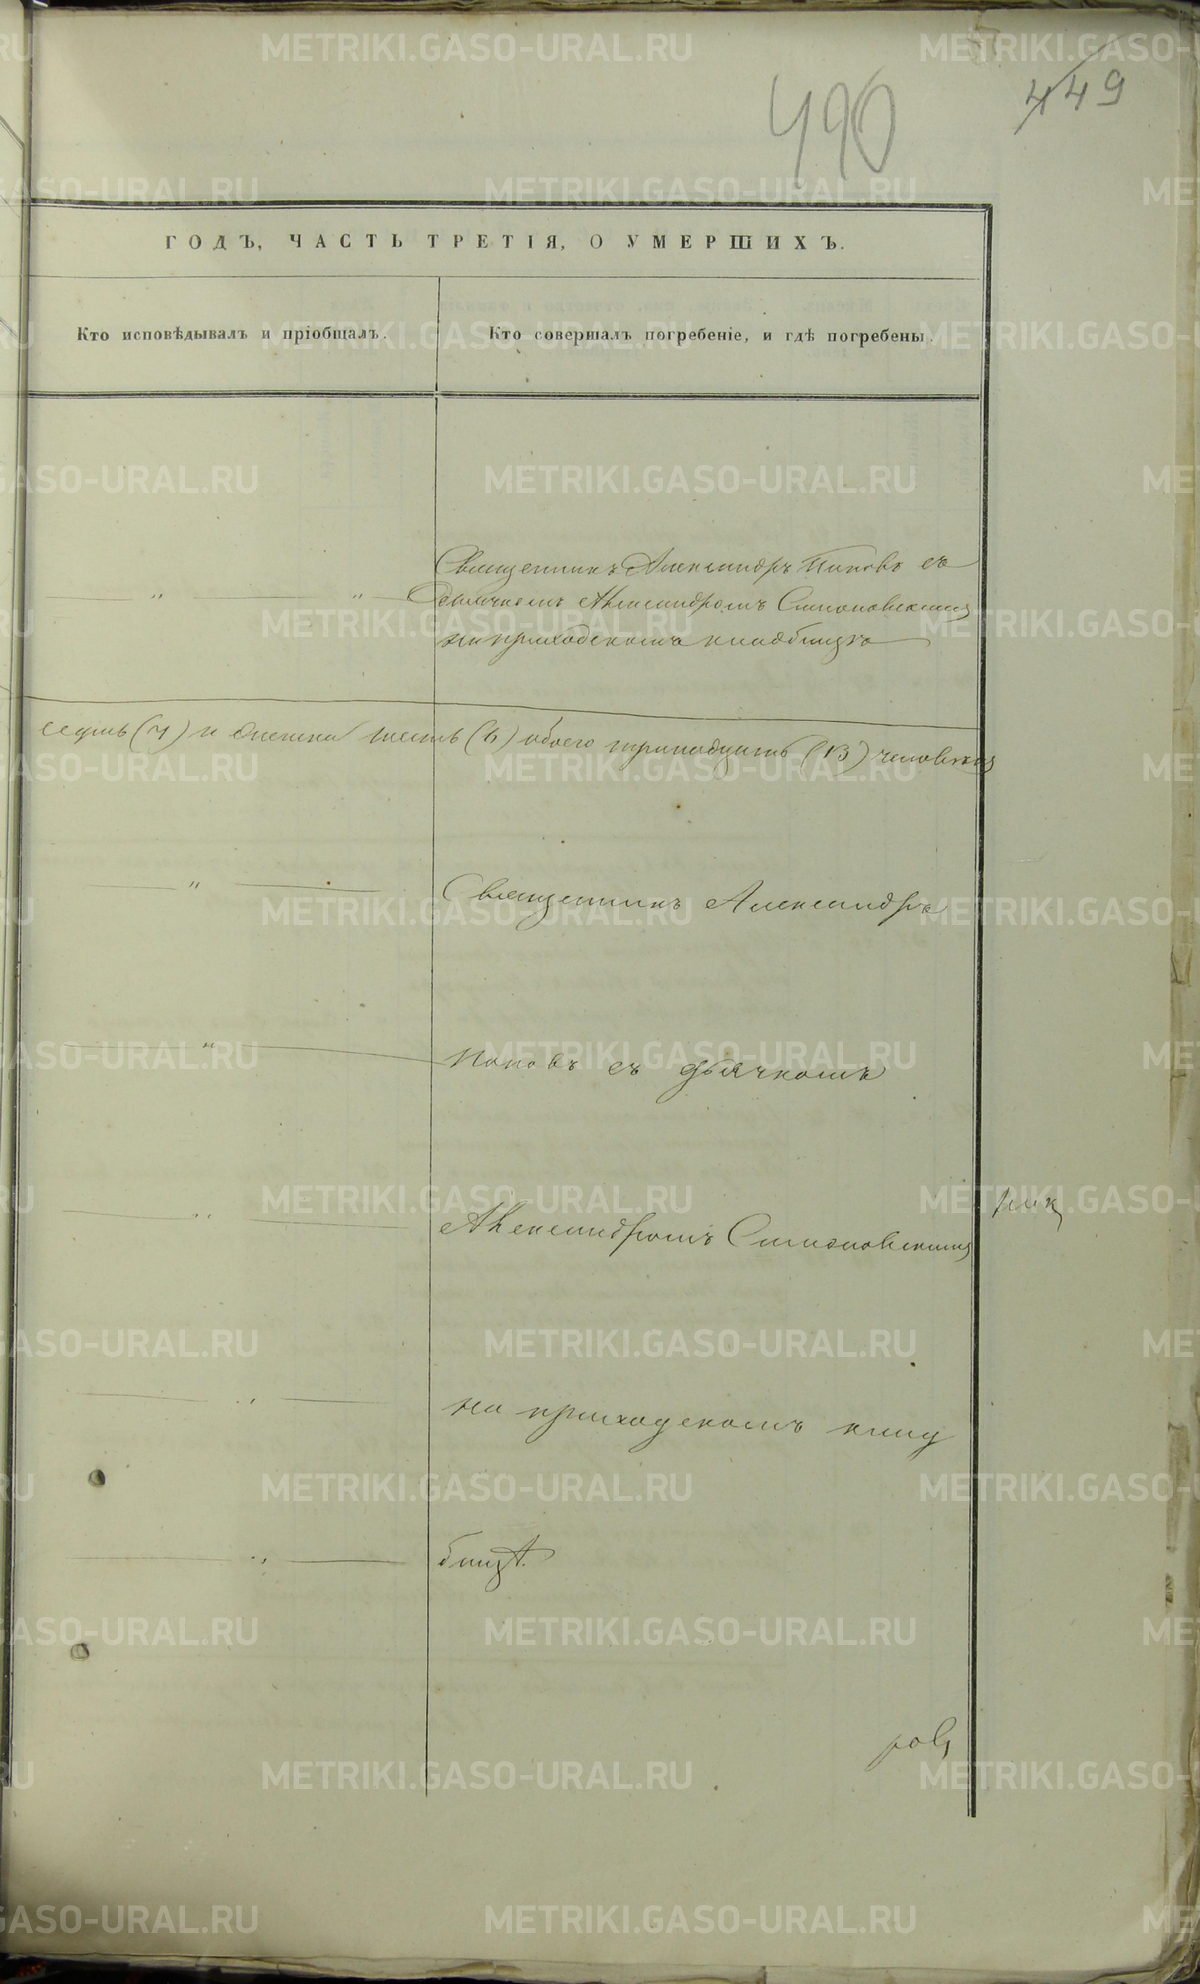 490
449
ГОДЪ, ЧАСТЬ ТРЕТІЯ, О УМЕРШИХЪ.
Кто исповѣдывалъ и пріобщалъ.
Кто совершалъ погребеніе, и гдѣ погребены.
Священникъ Александръ Поповъ съ
дьячкомъ Александромъ Симоновскимъ
на приходскомъ кладбищѣ
седмь (7) и женска шесть (6) обоего тринадцать (13) человѣкъ
Священникъ Александръ
Поповъ съ дьячкомъ
Александромъ Симоновскимъ
ник
на приходскомъ клад
бищѣ.
ров
METRIKI.GASO-URAL.RU